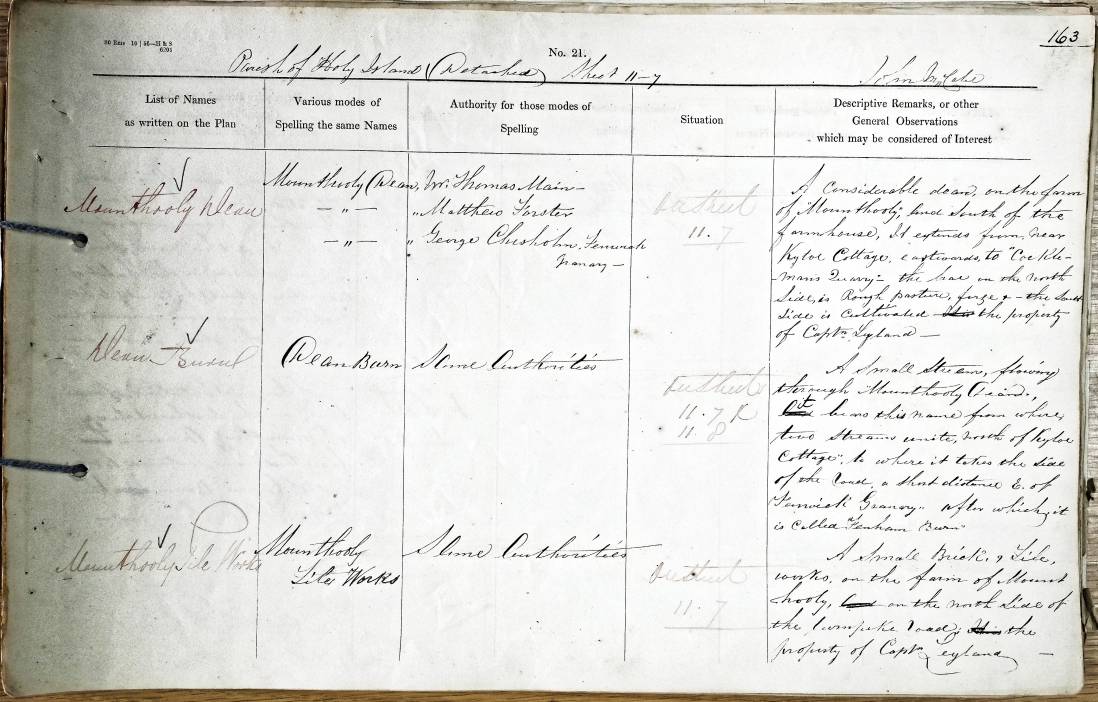 163
80 Bms 10 | 56—H & S
6203
No. 21.
Parish of Holy Island (Detached) Sheet 11-7
John McCabe
List of Names
as written on the Plan
Various modes of
Spelling the same Names
Authority for those modes of
Spelling
Situation
Descriptive Remarks, or other
General Observations
which may be considered of Interest
Mounthooly Dean
Mounthooly Dean,
— „ —
— „ —
Mr. Thomas Main —
„ Matthew Forster
„ George Chisholm, Fenwick
Granary —
11. 7
A Considerable dean, on the farm
of "Mounthooly", and South of the
farmhouse, It extends from near
Kyloe Cottage, eastwards, to "Cockle-
mans Quarry" - the brae on the North
Side, is Rough pasture, furze & - the South
Side is Cultivated It is the property
of Captn. Leyland —
Dean Burn
Dean Burn
Same Authorities
11. 7
11. 8
A Small Stream, flowing
through Mounthooly Dean,
it bears this name from where
two Streams unite, North of "Kyloe
Cottage", to where it takes the Side
of the road, a Short distance E. of
"Fenwick Granary" after which, it
is Called "Fenham Burn"
Mounthooly Tile Works
Mounthooly
Tile Works
Same Authorities
11. 7
A Small Brick, & Tile,
works, on the farm of Mount
hooly, on the North Side of
the turnpike road; It is the
property of Captn. Leyland —